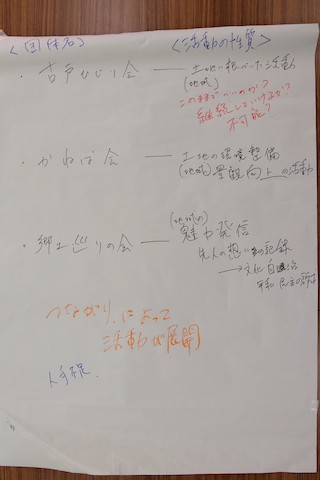 <団体名> <活動の性質>
・古戸ひじり会 ― 土地に根ざした活動
(地域)
このままでいいのか?
継続していけるか?
不可能?
・かわば会 ― 土地の環境整備
(地域)景観向上の活動
・郷土巡りの会 ― (地域の)魅力発信
先人の想いの記録
→文化 自治
平和
つながりによって
活動が展開
人手不足